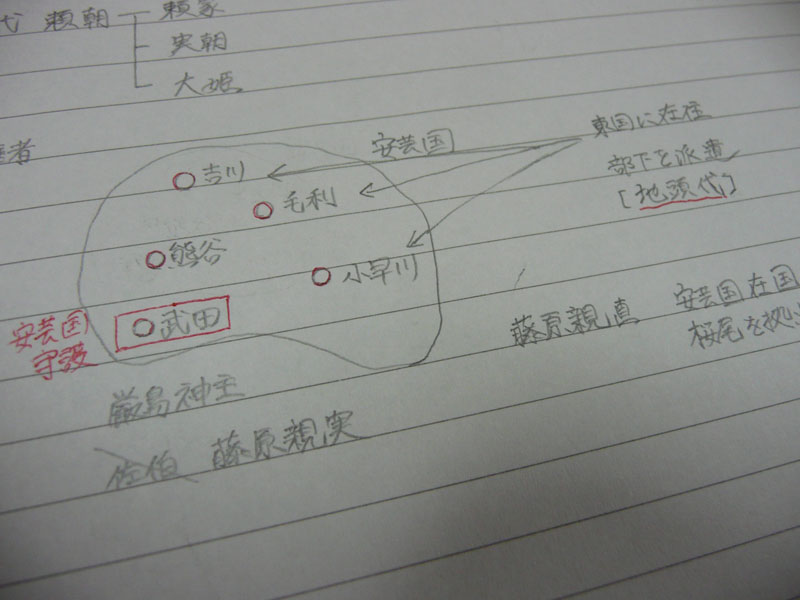 代 頼朝 頼家
実朝
大姫
者
安芸国
東国に在住
部下を派遣
[地頭代]
吉川
毛利
熊谷
小早川
武田
安芸国
守護
藤原親直
安芸国在国
桜尾を拠
厳島神主
佐伯 藤原親実